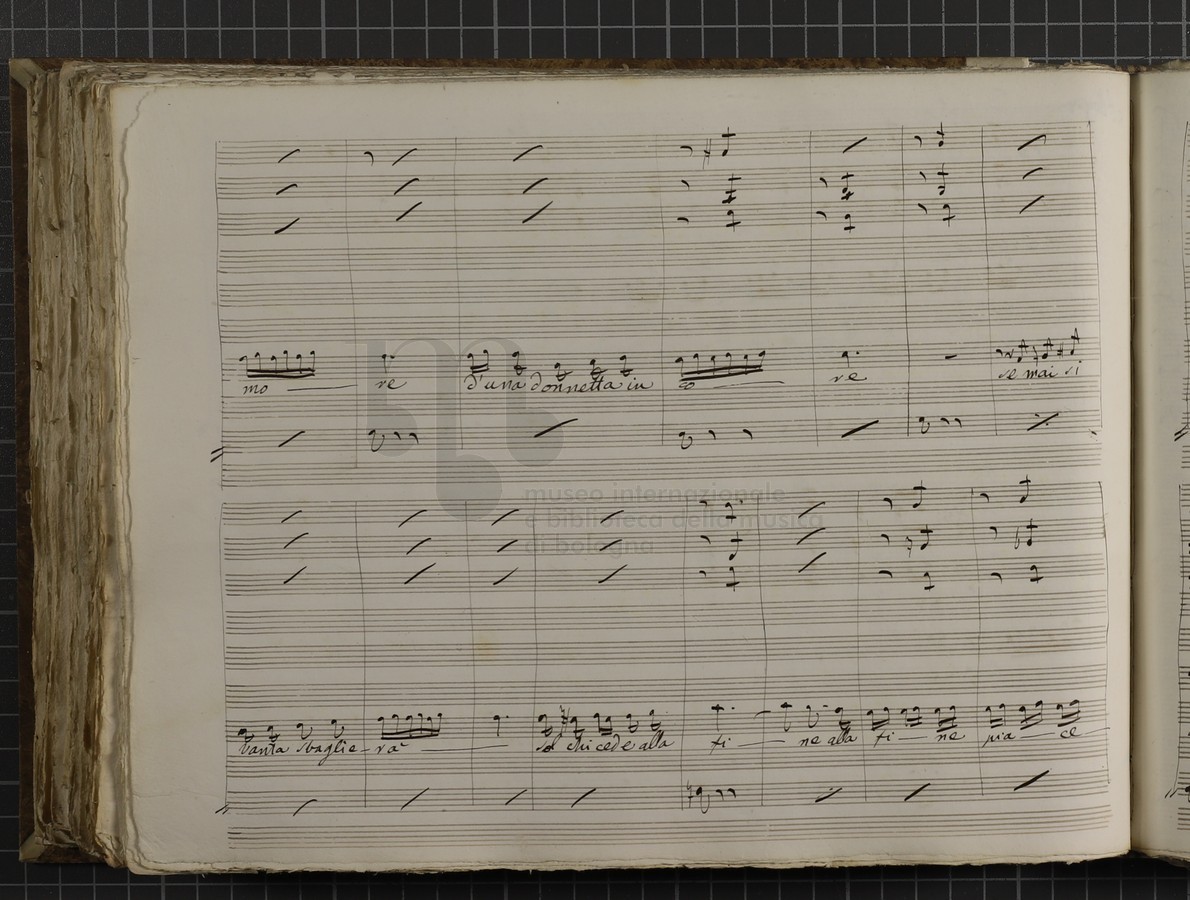 mo re d'una donnetta in co re se mai si
museo internazionale
e biblioteca della musica
di bologna
vanta sbaglie rà sol chi cede alla fi ne alla fi ne pia ce